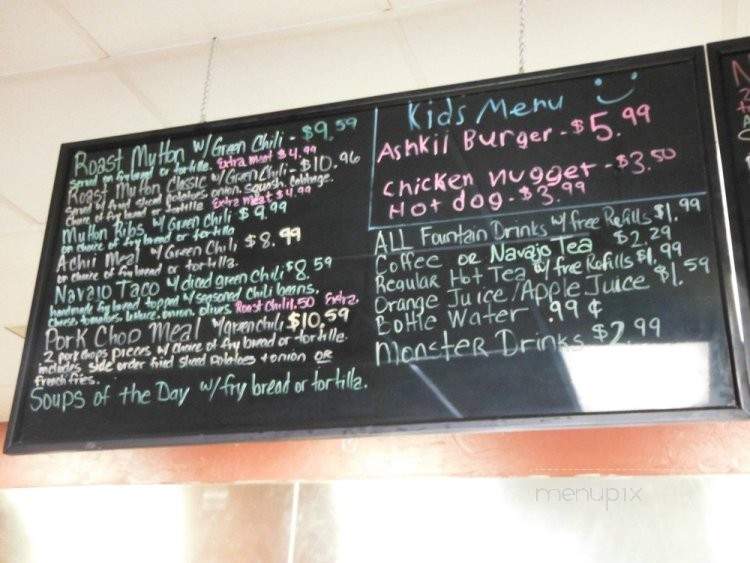 Roast Mutton w/ Green Chili - $9.59
served on fry bread or tortilla. Extra meat $4.99
Roast Mutton Classic w/ Green Chili - $10.96
served w/ fried sliced potatoes, onion, squash, cabbage.
choice of fry bread or tortilla Extra meat $4.99
Mutton Ribs w/ Green Chili $9.99
on choice of fry bread or tortilla
Achii Meal w/ Green Chili, $8.99
on choice of fry bread or tortilla.
Navajo Taco w/ diced green chili $8.59
handmade fry bread topped w/ seasoned chili beans,
cheese, tomatoes, lettuce, onion, olives Roast Chili 1.50 Extra.
Pork Chop Meal w/ green chili, $10.59
2 pork chops pieces w/ choice of fry bread or tortilla.
includes side order fried sliced potatoes + onion OR
french fries.
Soups of the Day w/ fry bread or tortilla.
Kids Menu
Ashkii Burger - $5.99
Chicken nugget - $3.50
Hot dog - $3.99
ALL Fountain Drinks w/ free Refills $1.99
Coffee OR Navajo Tea $2.29
Regular Hot Tea w/ free Refills $1.99
Orange Juice/Apple Juice $1.59
Bottle Water .99 ¢
Monster Drinks $2.99
menupix